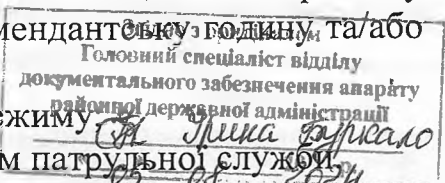 мендантську годину та/або
Згідно з оригіналом
Головний спеціаліст відділу
документального забезпечення апарату
районної державної адміністрації
ежиму
Ірина Буркало
м патрульної служби,